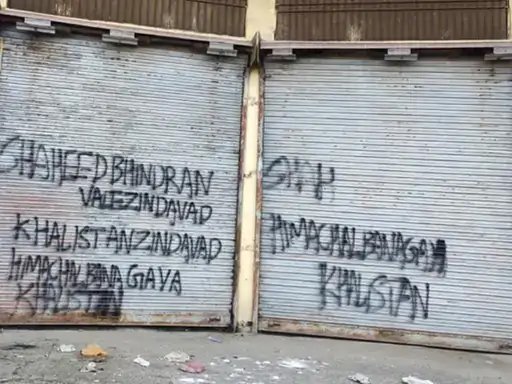 SHAHEED BHINDRAN
VALE ZINDAVAD
KHALISTAN ZINDAVAD
HIMACHAL BANA GAVA
KHALISTAN
HIMACHAL BANAGAVA
KHALISTAN